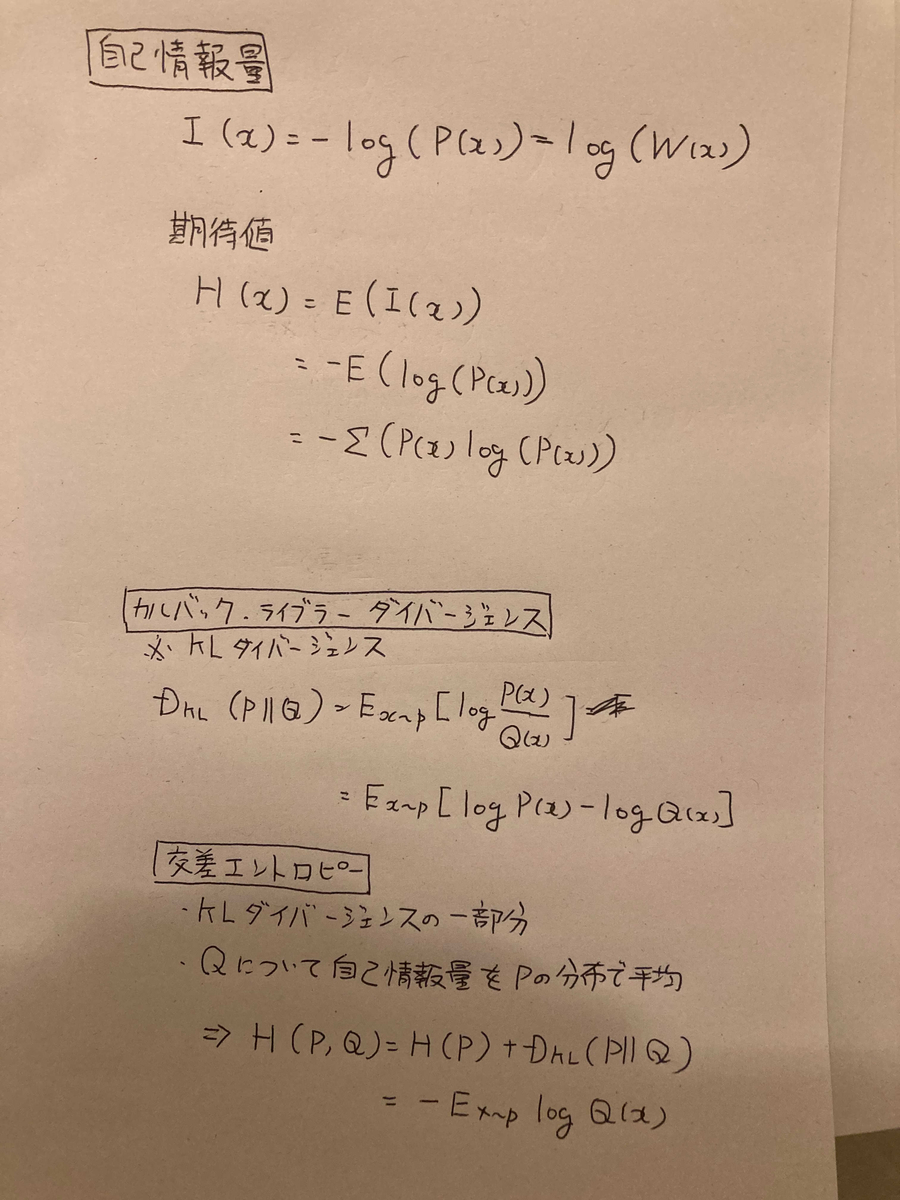 自己情報量
I(x) = -log(P(x)) = log(W(x))
期待値
H(x) = E(I(x))
= -E(log(P(x)))
= -Σ(P(x) log(P(x)))
カルバック・ライブラー ダイバージェンス
※ KLダイバージェンス
D_KL(P||Q) = E_x~p[log P(x)/Q(x)]
= E_x~p[log P(x) - log Q(x)]
交差エントロピー
・KLダイバージェンスの一部分
・Qについて自己情報量をPの分布で平均
⇒ H(P,Q) = H(P) + D_KL(P||Q)
= -E_x~p log Q(x)